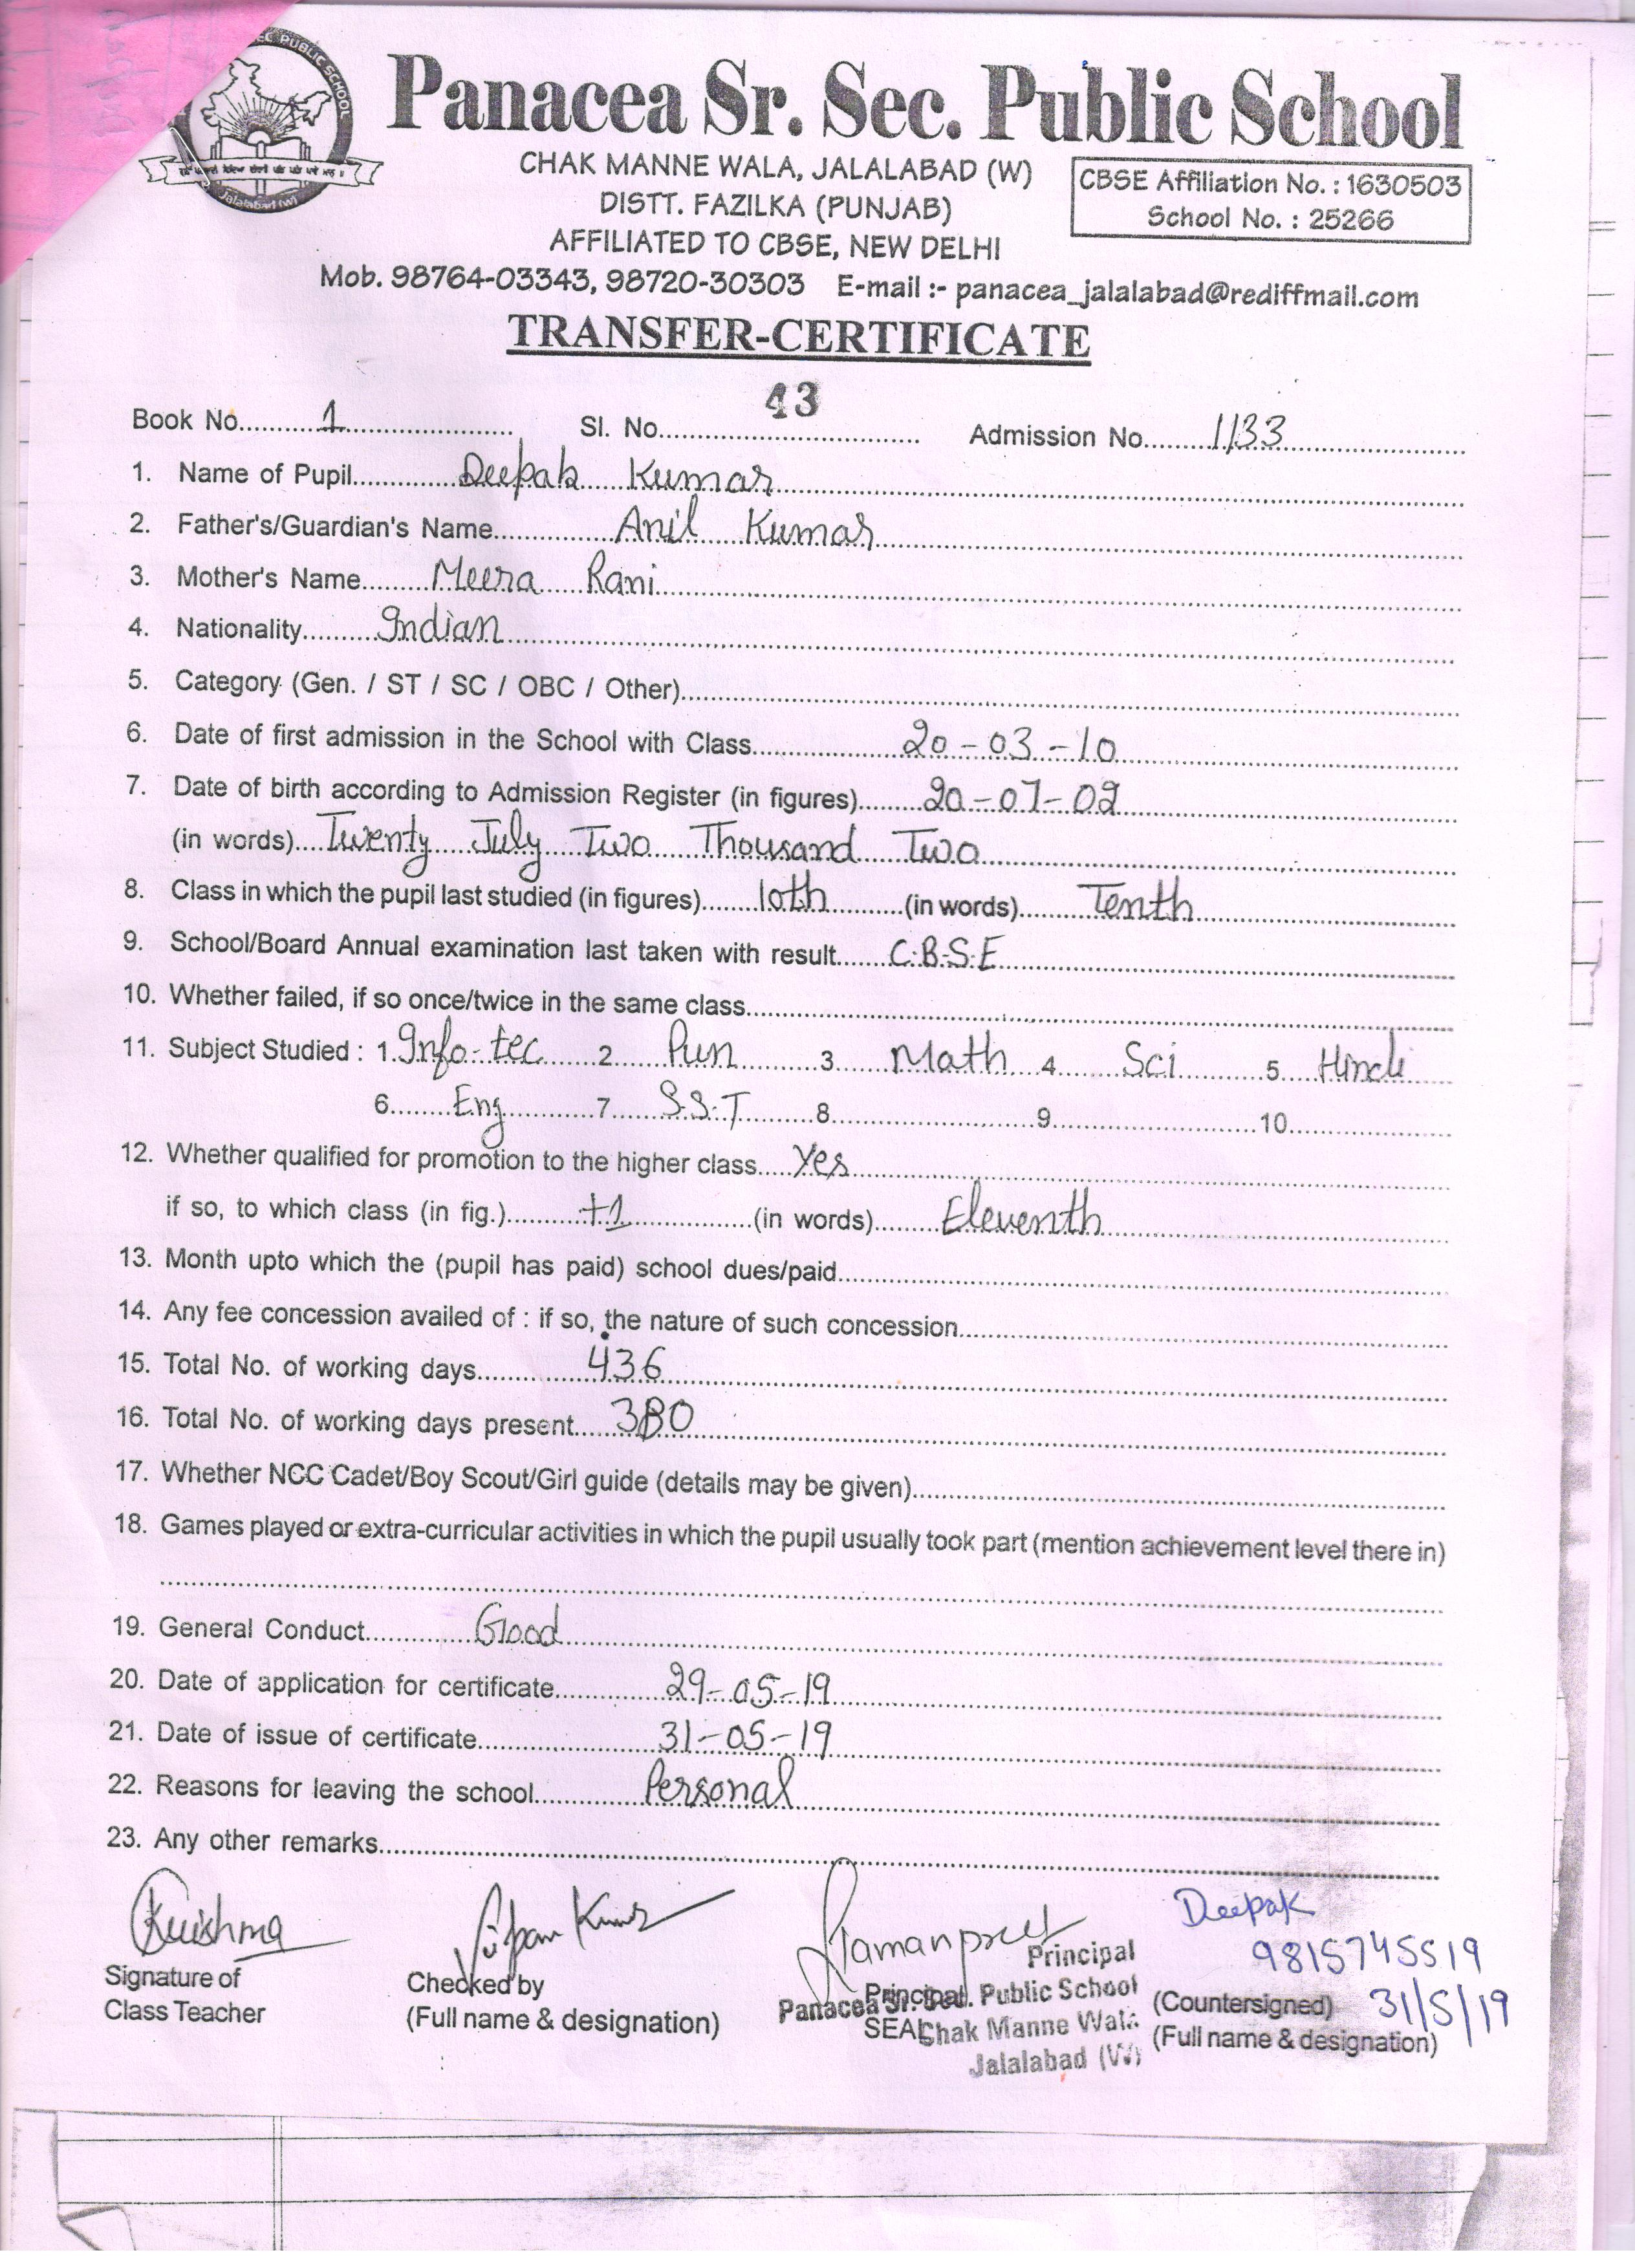 SEC PUBLIC SCHOOL
Jalalabad (W)
Panacea Sr. Sec. Public School
CHAK MANNE WALA, JALALABAD (W)
DISTT. FAZILKA (PUNJAB)
AFFILIATED TO CBSE, NEW DELHI
CBSE Affiliation No. : 1630503
School No. : 25266
Mob. 98764-03343, 98720-30303 E-mail :- panacea_jalalabad@rediffmail.com
TRANSFER-CERTIFICATE
Book No. 1 Sl. No. 43 Admission No. 1133
1. Name of Pupil Deepak Kumar
2. Father's/Guardian's Name Anil Kumar
3. Mother's Name Meera Rani
4. Nationality Indian
5. Category (Gen. / ST / SC / OBC / Other)
6. Date of first admission in the School with Class 20-03-10
7. Date of birth according to Admission Register (in figures) 20-07-02
(in words) Twenty July Two Thousand Two
8. Class in which the pupil last studied (in figures) 10th (in words) Tenth
9. School/Board Annual examination last taken with result C.B.S.E
10. Whether failed, if so once/twice in the same class
11. Subject Studied : 1. Info-tec 2 Pun 3 Math 4 Sci 5 Hindi
6 Eng 7 S.S.T 8 9 10
12. Whether qualified for promotion to the higher class Yes
if so, to which class (in fig.) +1 (in words) Eleventh
13. Month upto which the (pupil has paid) school dues/paid
14. Any fee concession availed of : if so, the nature of such concession
15. Total No. of working days 436
16. Total No. of working days present 380
17. Whether NCC Cadet/Boy Scout/Girl guide (details may be given)
18. Games played or extra-curricular activities in which the pupil usually took part (mention achievement level there in)
19. General Conduct Good
20. Date of application for certificate 29-05-19
21. Date of issue of certificate 31-05-19
22. Reasons for leaving the school Personal
23. Any other remarks
Karishma
Signature of
Class Teacher
Checked by
(Full name & designation)
Ramanpreet
Principal
SEAL
Principal
Panacea Sr. Sec. Public School
Chak Manne Wala
Jalalabad (W)
Deepak
9815745519
(Countersigned) 31/5/19
(Full name & designation)